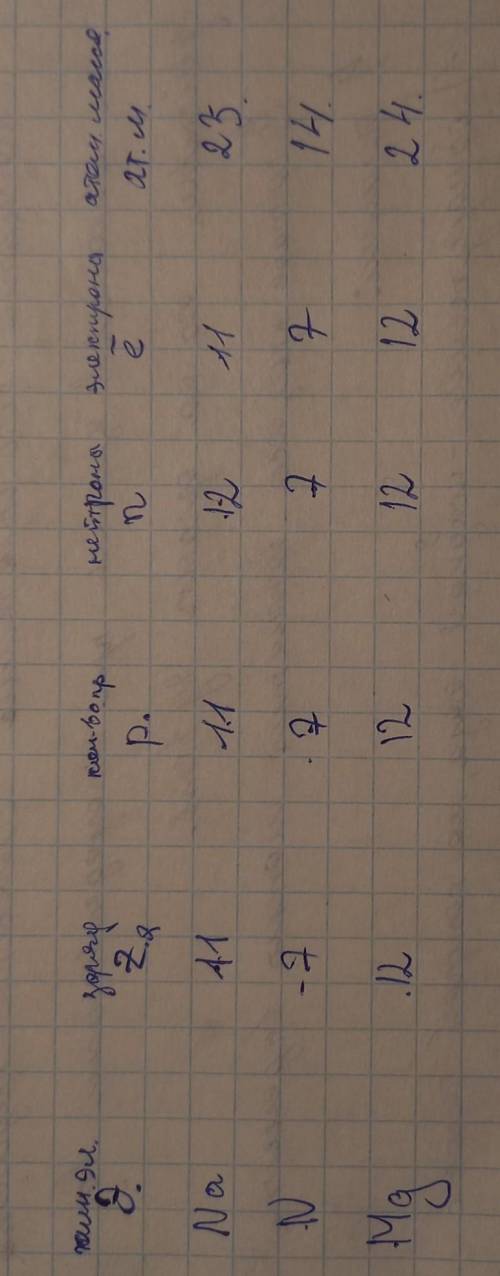 хим. эл. заряд кол-во пр нейтроны электроны атом. масса
Э. Z я р. n ē ат. м.
Na 11 11 12 11 23.
N -7 7 7 7 14.
Mg 12 12 12 12 24.